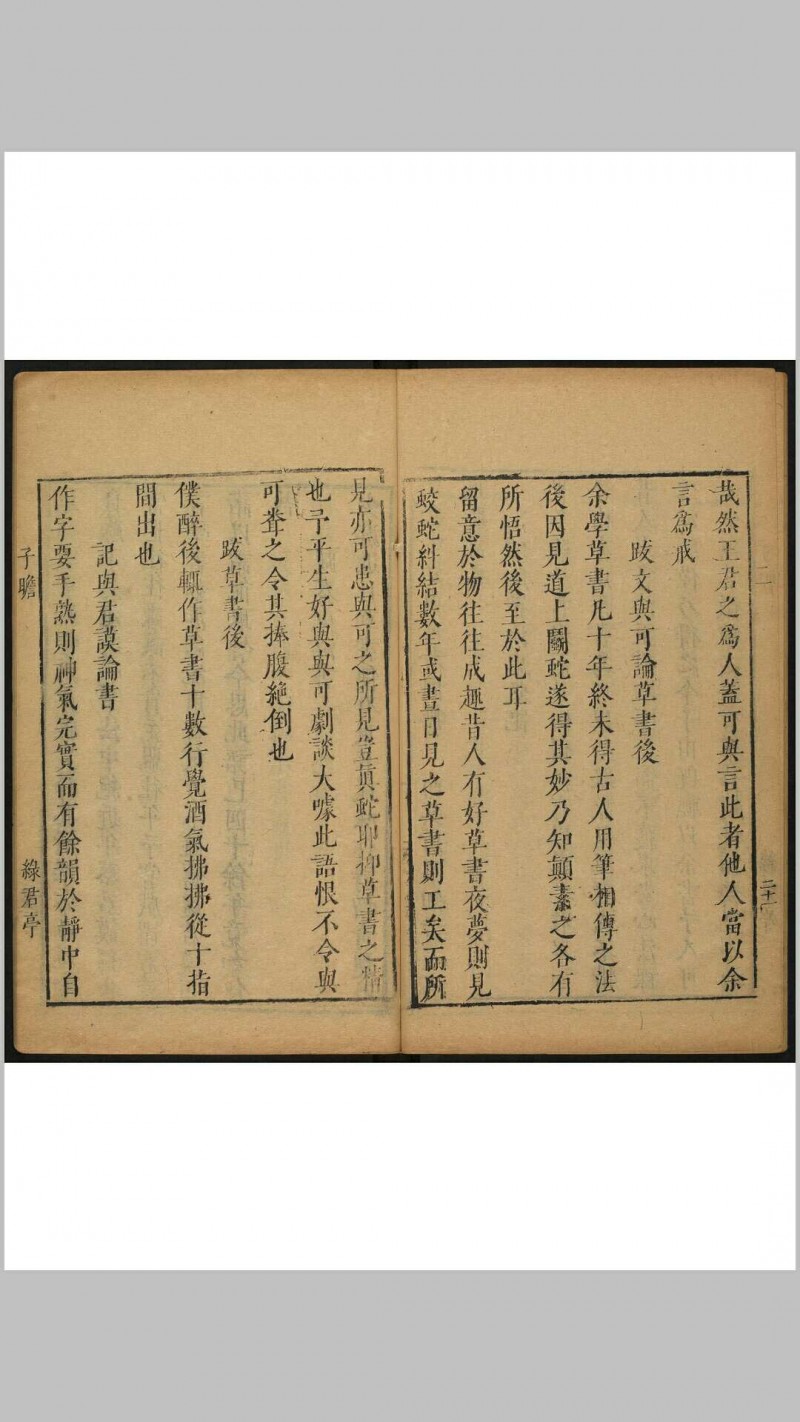 二
二十一
哉然王君之為人蓋可與言此者他人當以余
言為戒
跋文與可論草書後
余學草書凡十年終未得古人用筆相傳之法
後因見道上鬬蛇遂得其妙乃知顛素之各有
所悟然後至於此耳
留意於物往往成趣昔人有好草書夜夢則見
蛟蛇糾結數年或晝日見之草書則工矣而所
見亦可患與可之所見豈眞蛇耶抑草書之精
也予平生好與與可劇談大噱此語恨不令與
可聋之令其捧腹絶倒也
跋草書後
僕醉後輒作草書十數行覺酒氣拂拂從十指
間出也
記與君謨論書
作字要手熟則神氣完實而有餘韻於靜中自
子瞻
綠君亭